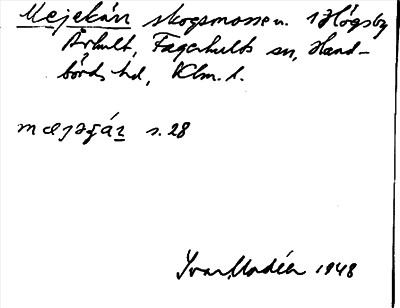 Mejekärr skogsmosse n. i Högsby
Århult, Fagerhults sn, Hand-
börds hd, Klm. l.
s. 28
Ivar Modéer 1948